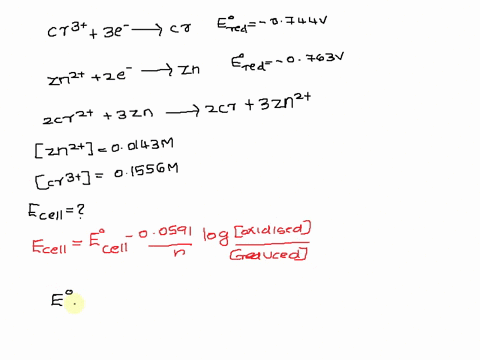 cr³⁺ + 3e⁻ → cr E°red = -0.744V
zn²⁺ + 2e⁻ → zn E°red = -0.763V
2cr²⁺ + 3zn → 2cr + 3zn²⁺
[zn²⁺] = 0.0143M
[cr³⁺] = 0.1556M
Ecell = ?
Ecell = E°cell - 0.0591/n log [oxidised]/[reduced]
E°